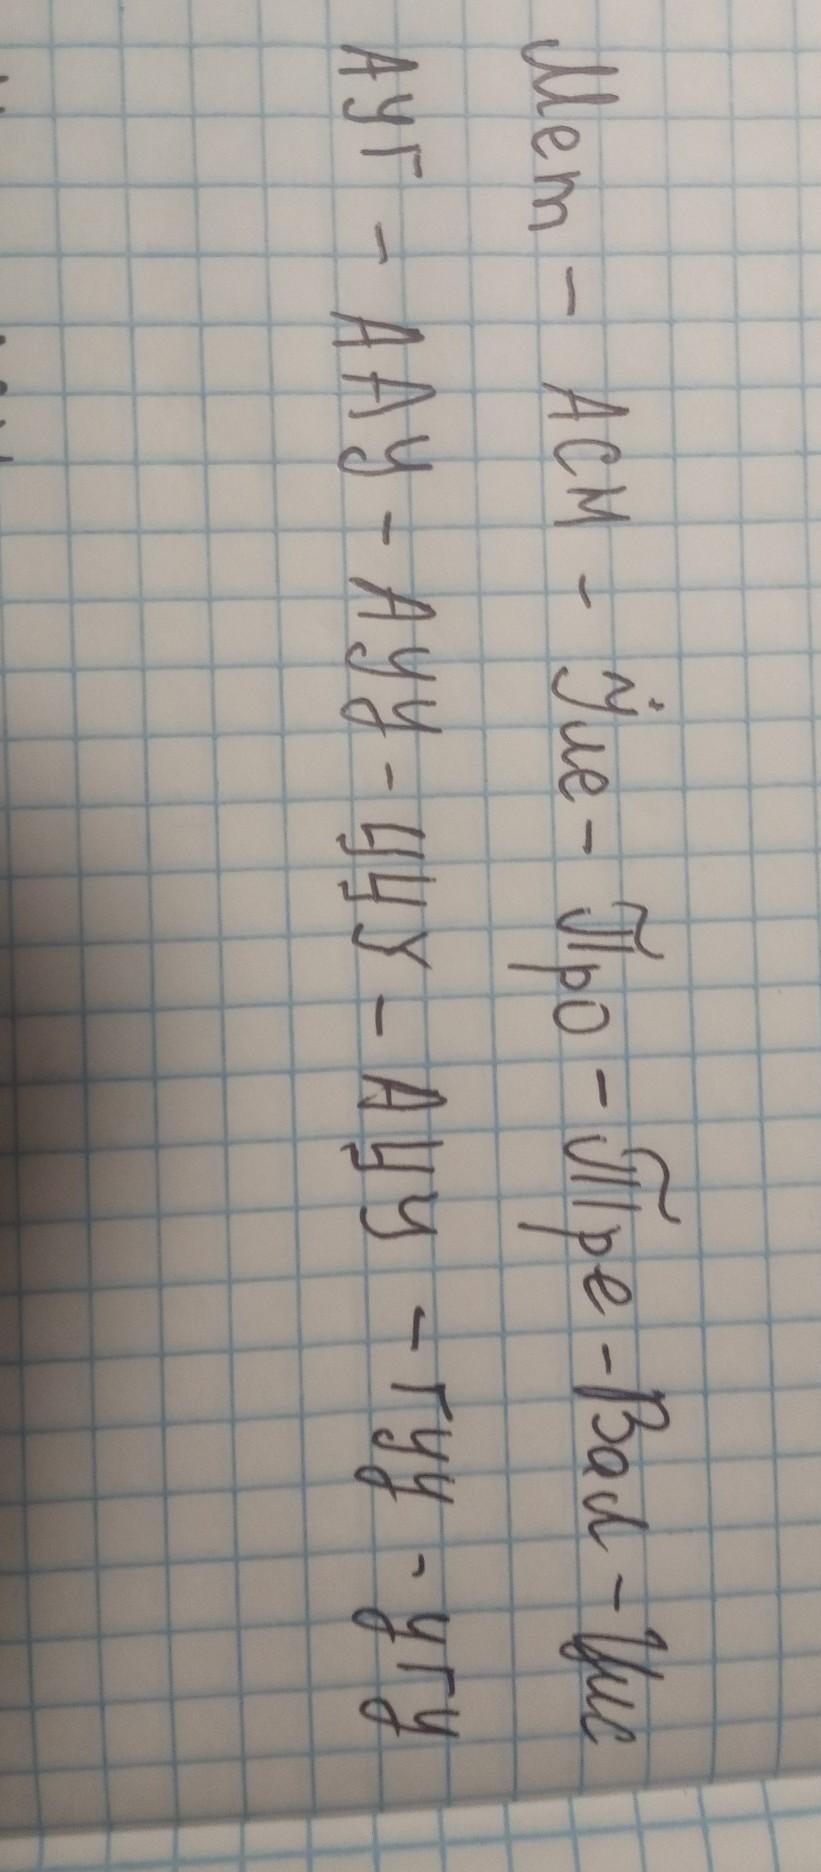 Мет - АСН - Иле - Про - Тре - Вал - Цис
АУГ - ААУ - АУУ - ЦЦУ - АЦУ - ГУУ - УГУ